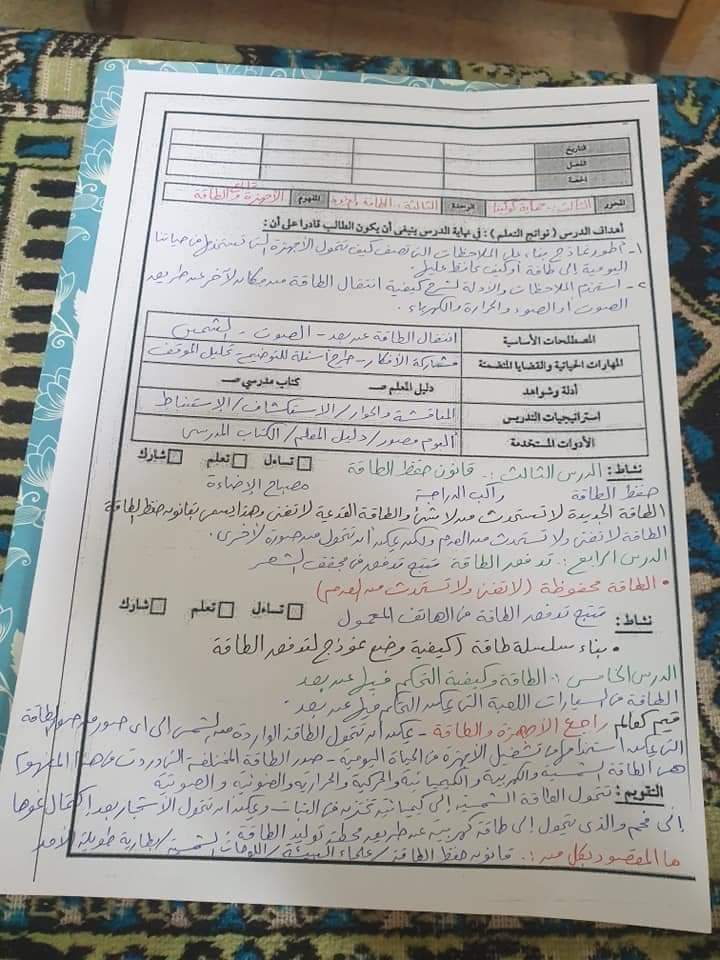 التاريخ
الفصل
الحصة
المحور الثالث :- حماية كوكبنا الوحدة الثالثة : الطاقة المفهوم الأجهزة والطاقة
أهداف الدرس ( نواتج التعلم ) : في نهاية الدرس ينبغي أن يكون الطالب قادرا على أن :
1- أطور نماذج بناء على الملاحظات التي تصف كيف تتحول الأجهزة التي تستخدم في حياتنا
اليومية إلى طاقة أو كيف نحافظ عليها
2- استخدم الملاحظات والأدلة لشرح كيفية انتقال الطاقة من مكان لآخر عن طريق
الصوت أو الضوء والحرارة والكهرباء .
المصطلحات الأساسية انتقال الطاقة عن بعد - الصوت - الشمس
المهارات الحياتية والقضايا المتضمنة مشاركة الأفكار - طرح أسئلة للتوضيح - تحليل الموقف
أدلة وشواهد دليل المعلم صـ كتاب مدرسي صـ
استراتيجيات التدريس المناقشة والحوار / الاستكشاف / الاستنباط
الأدوات المستخدمة البوم مصور / دليل المعلم / الكتاب المدرسى
نشاط : الدرس الثالث :. قانون حفظ الطاقة تساءل تعلم شارك
حفظ الطاقة راكب الدراجة مصباح الإضاءة
الطاقة الجديدة لا تستحدث من لا شئ والطاقة القديمة لا تفنى وهذا يسمى بقانون حفظ الطاقة
الطاقة لا تفنى ولا تستحدث من العدم ولكن يمكن أن تتحول من صورة لأخرى .
الدرس الرابع :. تدفق الطاقة تتبع تدفق فى مجفف الشعر
• الطاقة محفوظة (لا تفنى ولا تستحدث من العدم)
نشاط : تتبع تدفق الطاقة فى الهاتف المحمول تساءل تعلم شارك
• بناء سلسلة طاقة (كيفية وضع نموذج لتدفق الطاقة
الدرس الخامس :. الطاقة وكيفية التحكم فيها عن بعد
الطاقة فى السيارات اللعبة التى يمكن التحكم فيها عن بعد .
قيم كعالم راجع الأجهزة والطاقة - يمكن أن تتحول الطاقة الواردة من الشمس إلى أى صورة من صور الطاقة
التى يمكن استخدامها فى تشغيل الأجهزة فى الحياة اليومية - صور الطاقة المختلفة التى وردت فى هذا المفهوم
هى الطاقة الشمسية والكهربية والكيميائية والحركية والحرارية والضوئية والصوتية
التقويم : تتحول الطاقة الشمسية إلى كيميائية تختزن فى النبات ويمكن أن تتحول الأشجار بعد اكتمال نموها
إلى فحم والذى يتحول إلى طاقة كهربية عن طريق محطة توليد الطاقة
ما المقصود بكل من :. قانون حفظ الطاقة / علماء البيئة / اللوحات الشمسية / بطارية طويلة الأمد